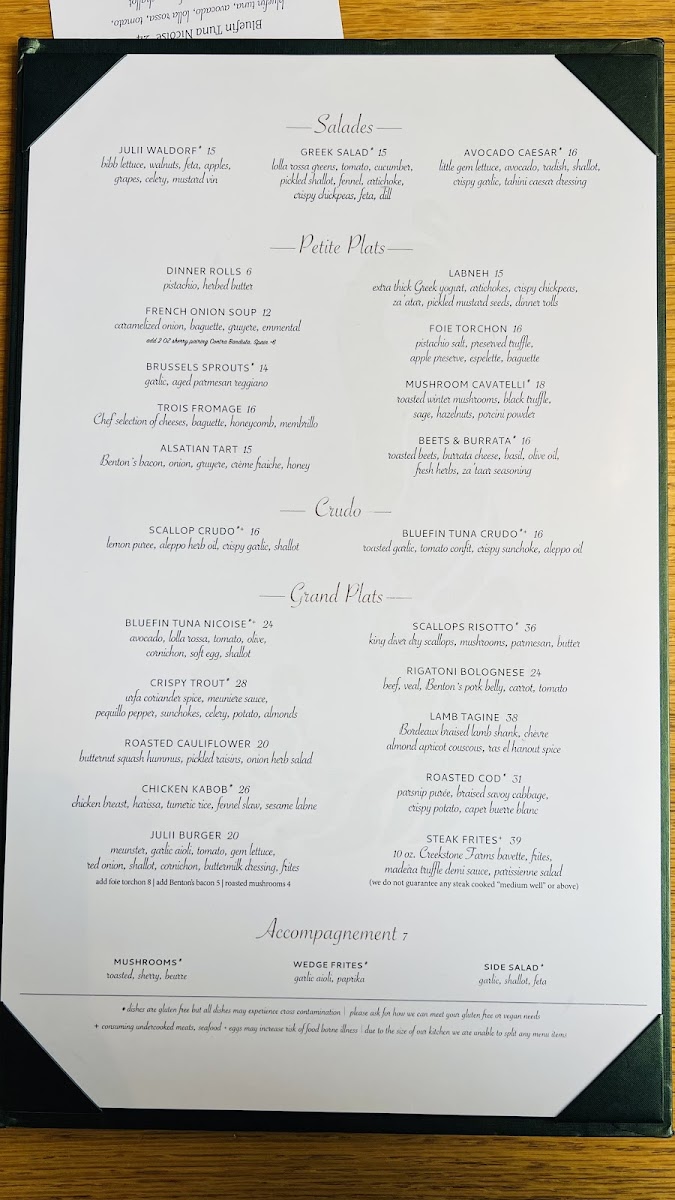 Bluefin Tuna Nicoise 24
bluefin tuna, avocado, lolla rossa, tomato,
Salades
JULII WALDORF* 15
bibb lettuce, walnuts, feta, apples,
grapes, celery, mustard vin
GREEK SALAD* 15
lolla rossa greens, tomato, cucumber,
pickled shallot, fennel, artichoke,
crispy chickpeas, feta, dill
AVOCADO CAESAR* 16
little gem lettuce, avocado, radish, shallot,
crispy garlic, tahini caesar dressing
Petite Plats
DINNER ROLLS 6
pistachio, herbed butter
FRENCH ONION SOUP 12
caramelized onion, baguette, gruyere, emmental
add 2 OZ sherry pairing Contra Bandista, Spain +6
BRUSSELS SPROUTS* 14
garlic, aged parmesan reggiano
TROIS FROMAGE 16
Chef selection of cheeses, baguette, honeycomb, membrillo
ALSATIAN TART 15
Benton's bacon, onion, gruyere, crème fraiche, honey
LABNEH 15
extra thick Greek yogurt, artichokes, crispy chickpeas,
za'atar, pickled mustard seeds, dinner rolls
FOIE TORCHON 16
pistachio salt, preserved truffle,
apple preserve, espelette, baguette
MUSHROOM CAVATELLI* 18
roasted winter mushrooms, black truffle,
sage, hazelnuts, porcini powder
BEETS & BURRATA* 16
roasted beets, burrata cheese, basil, olive oil,
fresh herbs, za'taar seasoning
Crudo
SCALLOP CRUDO*+ 16
lemon puree, aleppo herb oil, crispy garlic, shallot
BLUEFIN TUNA CRUDO*+ 16
roasted garlic, tomato confit, crispy sunchoke, aleppo oil
Grand Plats
BLUEFIN TUNA NICOISE*+ 24
avocado, lolla rossa, tomato, olive,
cornichon, soft egg, shallot
CRISPY TROUT* 28
urfa coriander spice, meuniere sauce,
pequillo pepper, sunchokes, celery, potato, almonds
ROASTED CAULIFLOWER 20
butternut squash hummus, pickled raisins, onion herb salad
CHICKEN KABOB* 26
chicken breast, harissa, tumeric rice, fennel slaw, sesame labne
JULII BURGER 20
meunster, garlic aioli, tomato, gem lettuce,
red onion, shallot, cornichon, buttermilk dressing, frites
add foie torchon 8 | add Benton's bacon 5 | roasted mushrooms 4
SCALLOPS RISOTTO* 36
king diver dry scallops, mushrooms, parmesan, butter
RIGATONI BOLOGNESE 24
beef, veal, Benton's pork belly, carrot, tomato
LAMB TAGINE 38
Bordeaux braised lamb shank, chevre
almond apricot couscous, ras el hanout spice
ROASTED COD* 31
parsnip purée, braised savoy cabbage,
crispy potato, caper buerre blanc
STEAK FRITES+ 39
10 oz. Creekstone Farms bavette, frites,
madeira truffle demi sauce, parissienne salad
(we do not guarantee any steak cooked "medium well" or above)
Accompagnement 7
MUSHROOMS*
roasted, sherry, beurre
WEDGE FRITES*
garlic aioli, paprika
SIDE SALAD*
garlic, shallot, feta
* dishes are gluten free but all dishes may experience cross contamination | please ask for how we can meet your gluten free or vegan needs
+ consuming undercooked meats, seafood + eggs may increase risk of food borne illness | due to the size of our kitchen we are unable to split any menu items